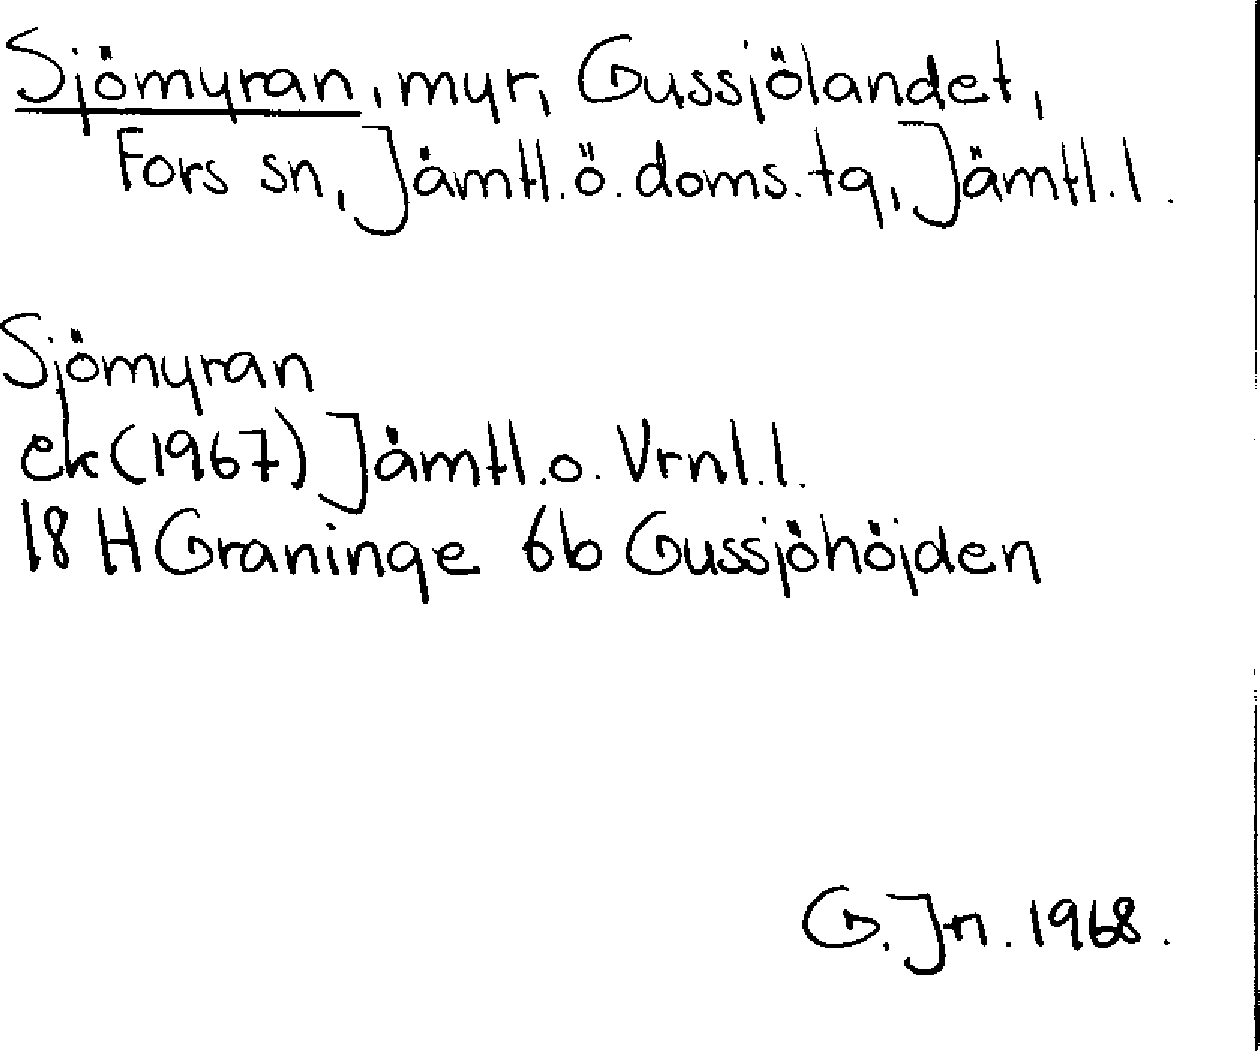 Sjömyran, myr, Gussjölandet,
Fors sn, Jämtl.ö.doms.tg, Jämtl.l.
Sjömyran
ek(1967) Jämtl.o. Vrnl.l.
18 H Graninge 6b Gussjöhöjden
G. Jn. 1968.